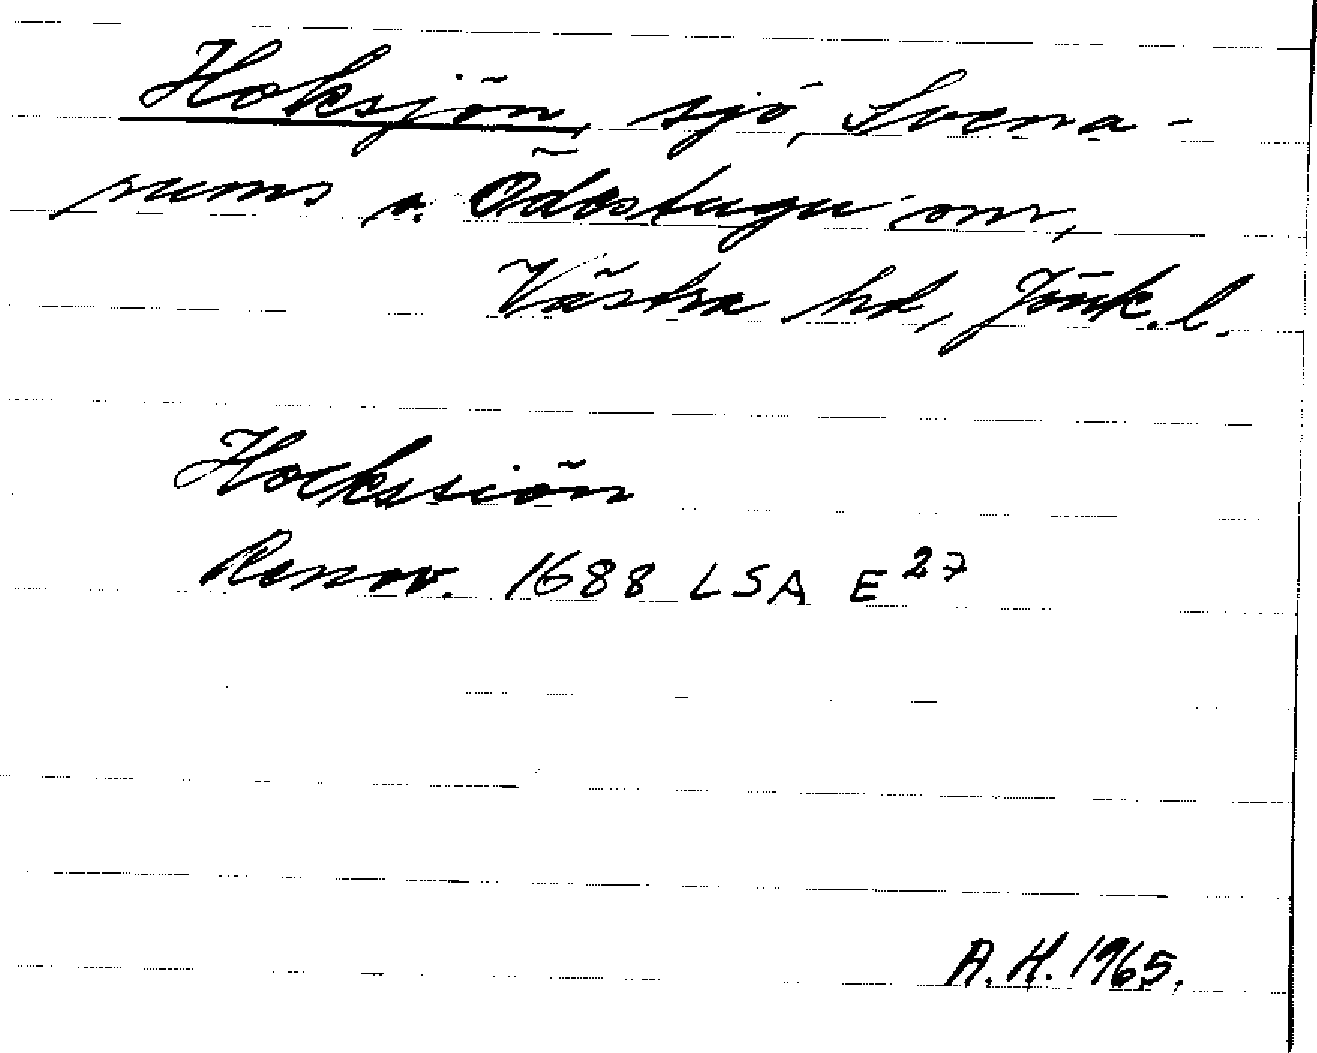 Hoksjön, sjö, Svena-
rums o. Ödestugu snr,
Västra hd, Jönk. l.
Hockssiön
Renov. 1688 LSA E 27
A.H. 1965.